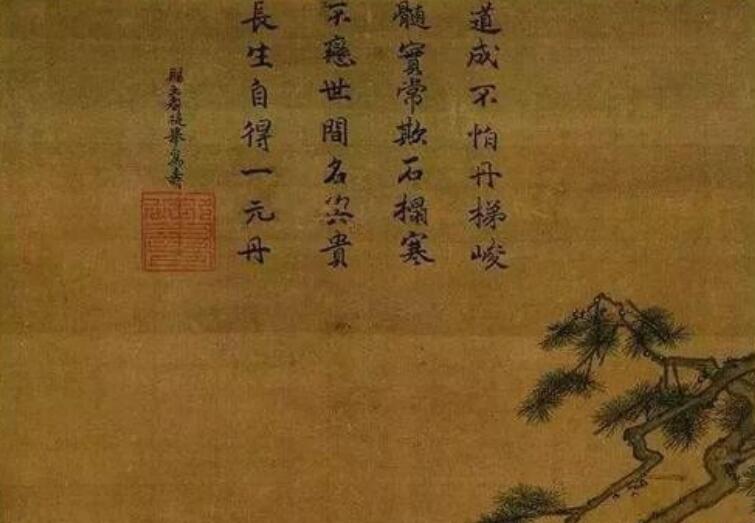 道成不怕丹梯峻
髓實常欺石榻寒
不戀世間名與貴
長生自得一元丹
賜王都提舉為壽